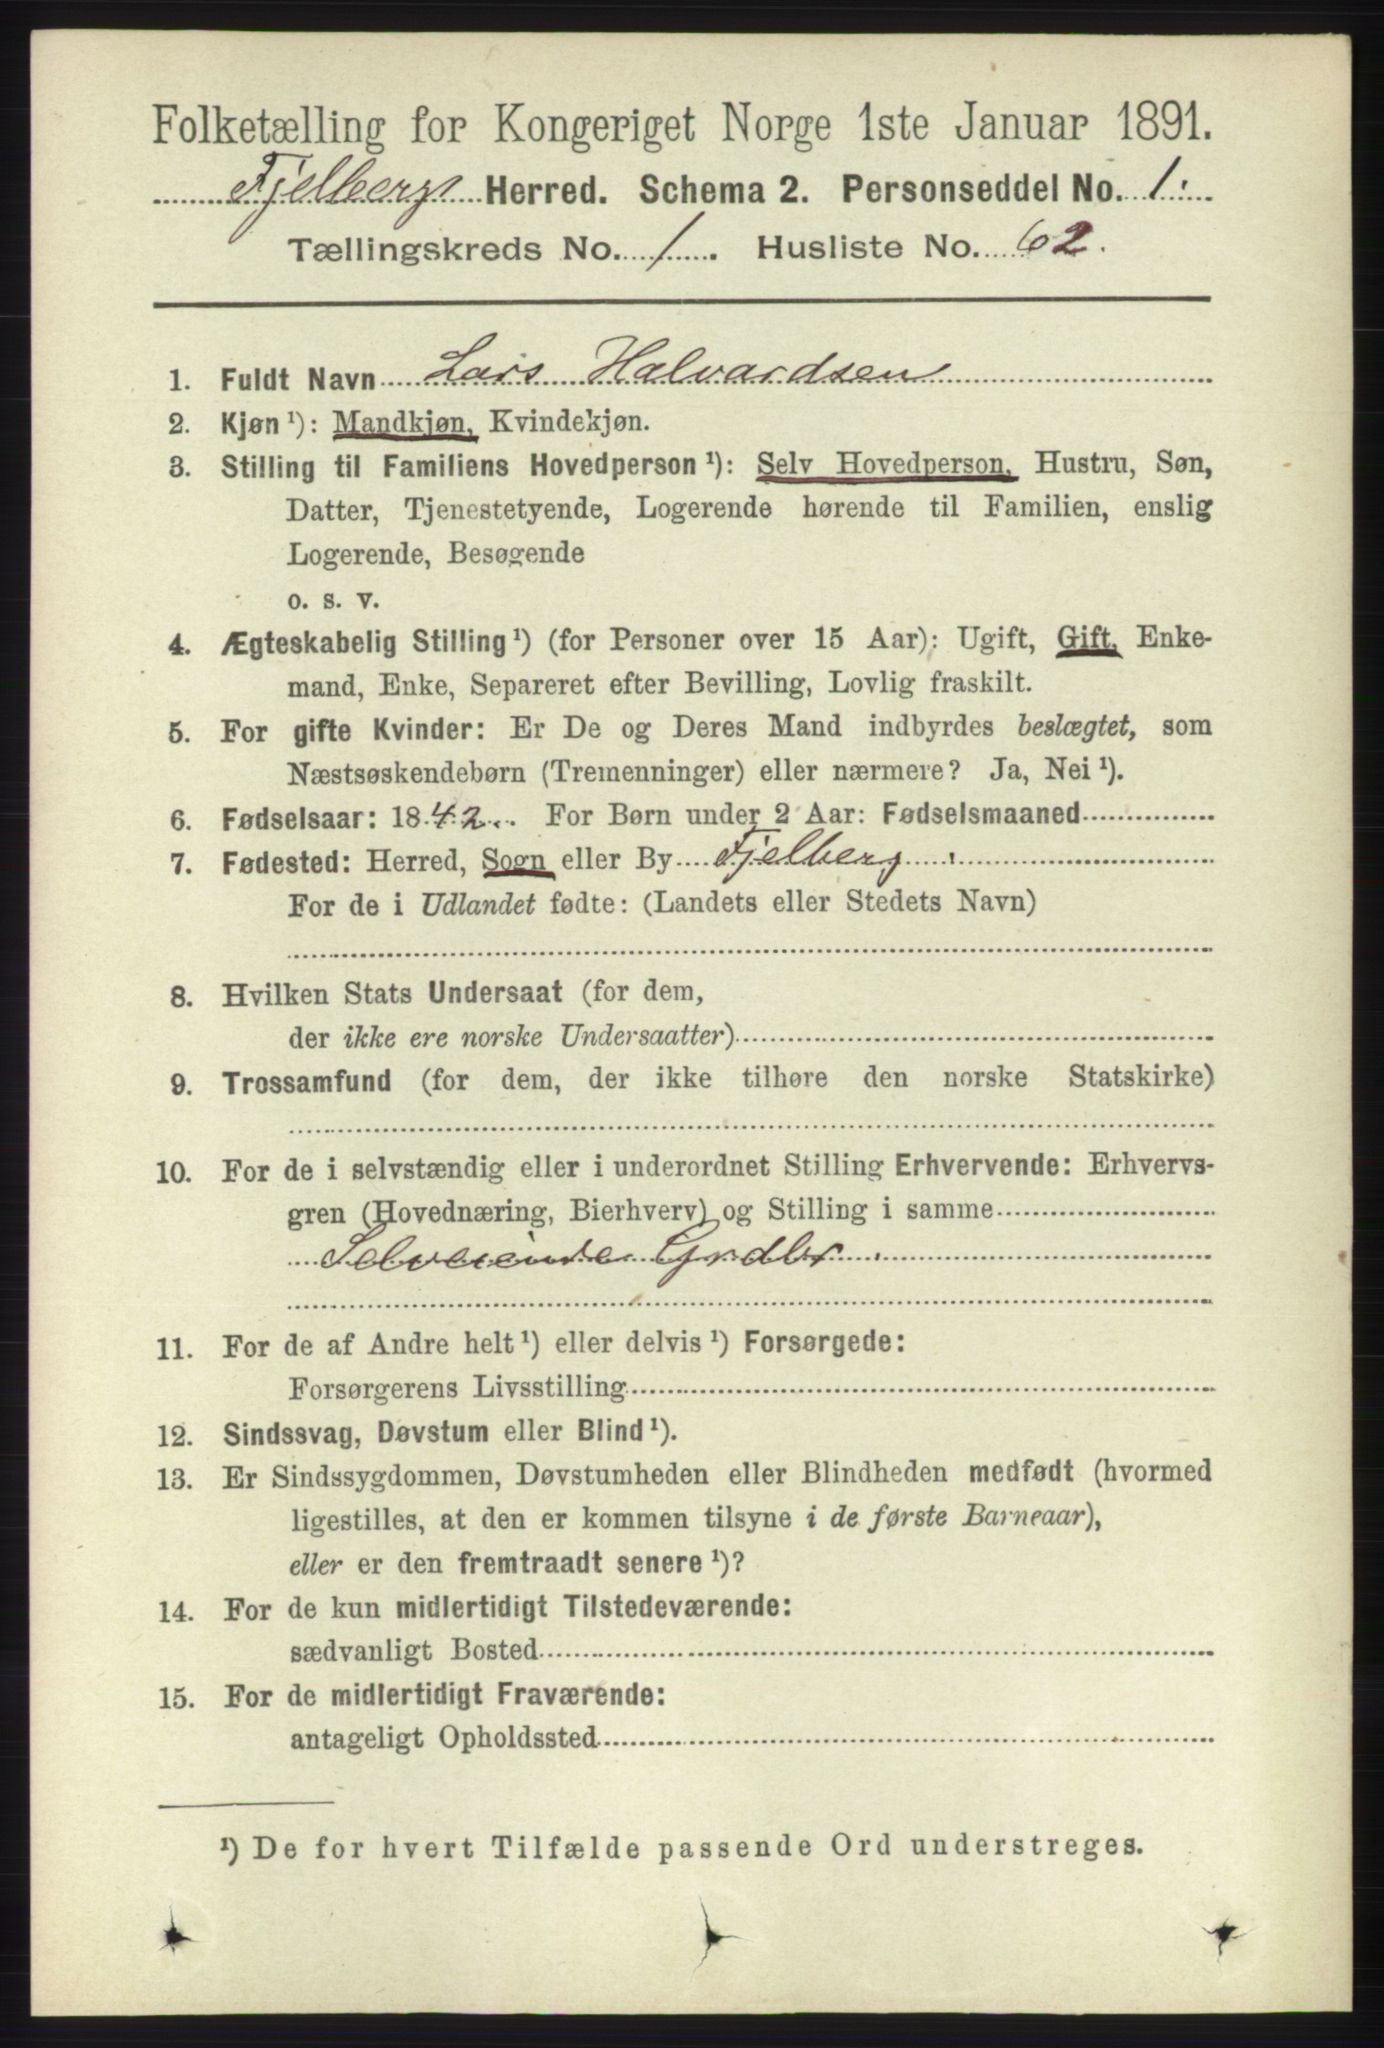 Folketælling for Kongeriget Norge 1ste Januar 1891.
Fjelbergs Herred. Schema 2. Personseddel No. 1.
Tællingskreds No. 1. Husliste No. 62.
1. Fuldt Navn Lars Halvardsen
2. Kjøn ¹): Mandkjøn, Kvindekjøn.
3. Stilling til Familiens Hovedperson ¹): Selv Hovedperson, Hustru, Søn,
Datter, Tjenestetyende, Logerende hørende til Familien, enslig
Logerende, Besøgende
o. s. v.
4. Ægteskabelig Stilling ¹) (for Personer over 15 Aar): Ugift, Gift, Enke-
mand, Enke, Separeret efter Bevilling, Lovlig fraskilt.
5. For gifte Kvinder: Er De og Deres Mand indbyrdes beslægtet, som
Næstsøskendebørn (Tremenninger) eller nærmere? Ja, Nei ¹).
6. Fødselsaar: 1842. For Børn under 2 Aar: Fødselsmaaned
7. Fødested: Herred, Sogn eller By Fjelberg
For de i Udlandet fødte: (Landets eller Stedets Navn)
8. Hvilken Stats Undersaat (for dem,
der ikke ere norske Undersaatter)
9. Trossamfund (for dem, der ikke tilhøre den norske Statskirke)
10. For de i selvstændig eller i underordnet Stilling Erhvervende: Erhvervs-
gren (Hovednæring, Bierhverv) og Stilling i samme
Selveiende Grdbr.
11. For de af Andre helt ¹) eller delvis ¹) Forsørgede:
Forsørgerens Livsstilling
12. Sindssvag, Døvstum eller Blind ¹).
13. Er Sindssygdommen, Døvstumheden eller Blindheden medfødt (hvormed
ligestilles, at den er kommen tilsyne i de første Barneaar),
eller er den fremtraadt senere ¹)?
14. For de kun midlertidigt Tilstedeværende:
sædvanligt Bosted
15. For de midlertidigt Fraværende:
antageligt Opholdssted
¹) De for hvert Tilfælde passende Ord understreges.